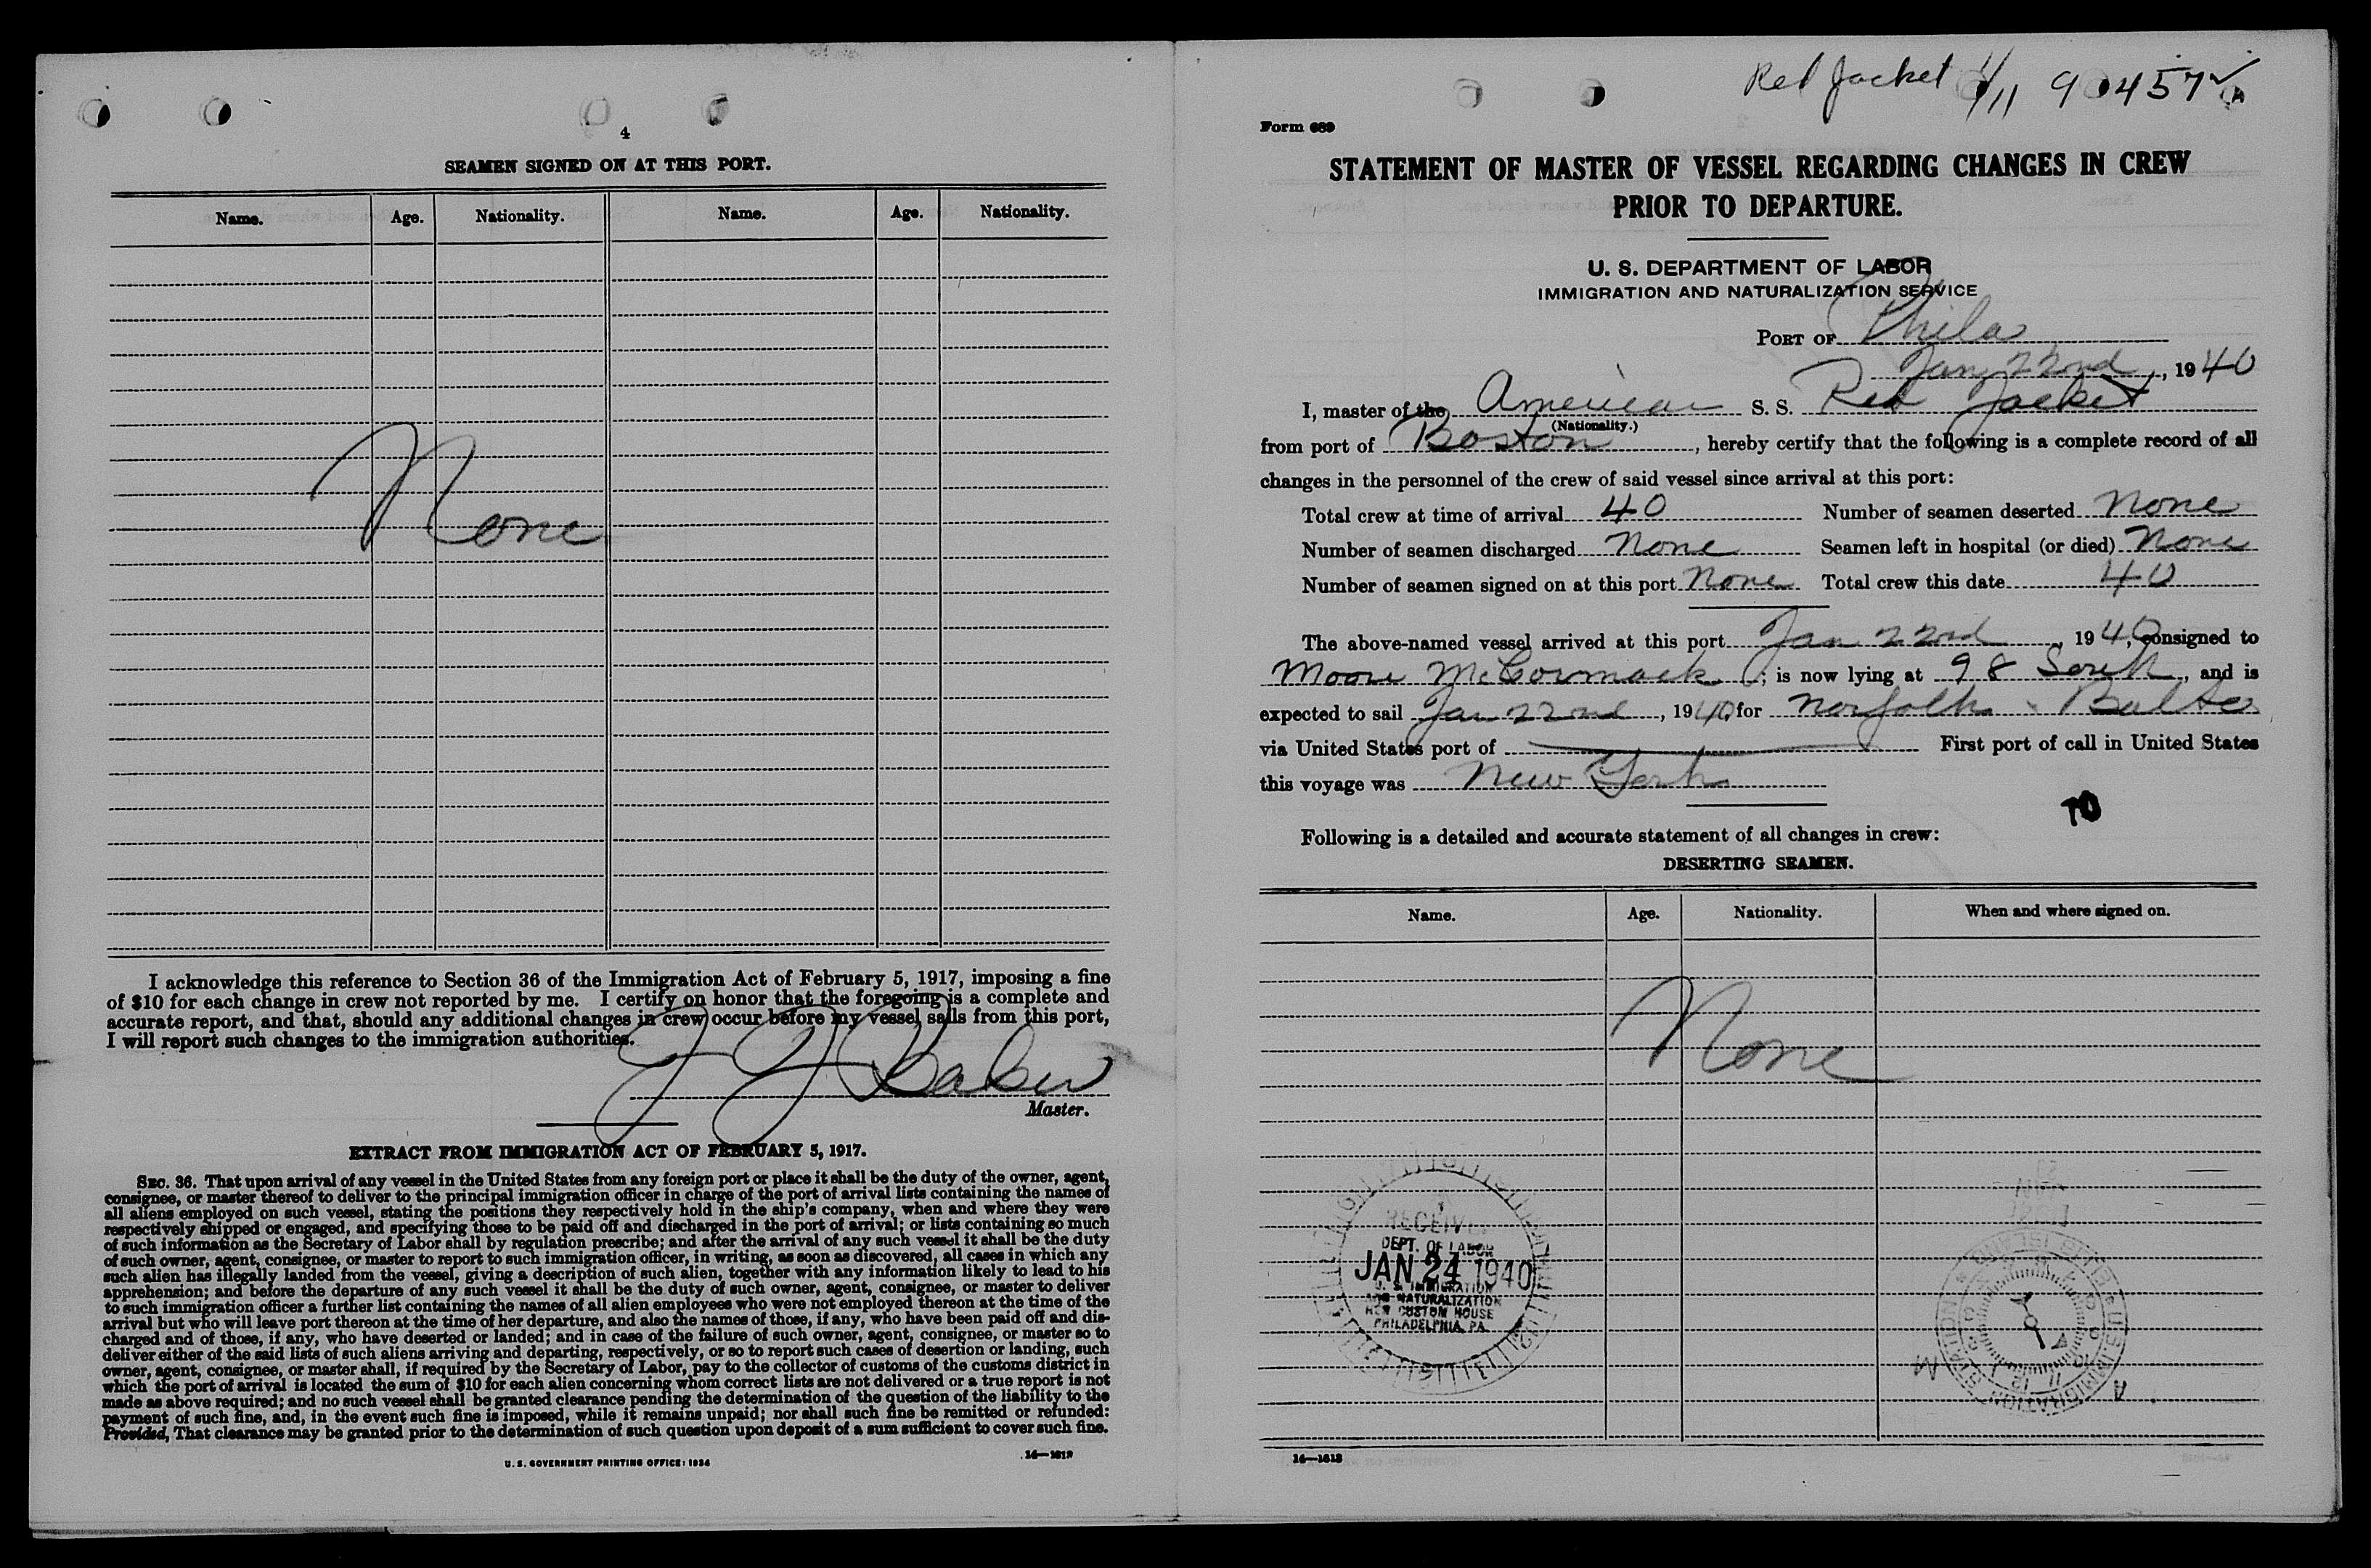 4
SEAMEN SIGNED ON AT THIS PORT.
Name. Age. Nationality. Name. Age. Nationality.
None
I acknowledge this reference to Section 36 of the Immigration Act of February 5, 1917, imposing a fine
of $10 for each change in crew not reported by me. I certify on honor that the foregoing is a complete and
accurate report, and that, should any additional changes in crew occur before my vessel sails from this port,
I will report such changes to the immigration authorities.
Baker
Master.
EXTRACT FROM IMMIGRATION ACT OF FEBRUARY 5, 1917.
SEC. 36. That upon arrival of any vessel in the United States from any foreign port or place it shall be the duty of the owner, agent,
consignee, or master thereof to deliver to the principal immigration officer in charge of the port of arrival lists containing the names of
all aliens employed on such vessel, stating the positions they respectively hold in the ship's company, when and where they were
respectively shipped or engaged, and specifying those to be paid off and discharged in the port of arrival; or lists containing so much
of such information as the Secretary of Labor shall by regulation prescribe; and after the arrival of any such vessel it shall be the duty
of such owner, agent, consignee, or master to report to such immigration officer, in writing, as soon as discovered, all cases in which any
such alien has illegally landed from the vessel, giving a description of such alien, together with any information likely to lead to his
apprehension; and before the departure of any such vessel it shall be the duty of such owner, agent, consignee, or master to deliver
to such immigration officer a further list containing the names of all alien employees who were not employed thereon at the time of the
arrival but who will leave port thereon at the time of her departure, and also the names of those, if any, who have been paid off and dis-
charged and of those, if any, who have deserted or landed; and in case of the failure of such owner, agent, consignee, or master so to
deliver either of the said lists of such aliens arriving and departing, respectively, or so to report such cases of desertion or landing, such
owner, agent, consignee, or master shall, if required by the Secretary of Labor, pay to the collector of customs of the customs district in
which the port of arrival is located the sum of $10 for each alien concerning whom correct lists are not delivered or a true report is not
made as above required; and no such vessel shall be granted clearance pending the determination of the question of the liability to the
payment of such fine, and, in the event such fine is imposed, while it remains unpaid; nor shall such fine be remitted or refunded:
Provided, That clearance may be granted prior to the determination of such question upon deposit of a sum sufficient to cover such fine.
U. S. GOVERNMENT PRINTING OFFICE: 1934
Red Jacket 1/11 90457
Form 689
STATEMENT OF MASTER OF VESSEL REGARDING CHANGES IN CREW
PRIOR TO DEPARTURE.
U. S. DEPARTMENT OF LABOR
IMMIGRATION AND NATURALIZATION SERVICE
PORT OF Phila
Jan 22nd, 1940
I, master of the American S. S. Red Jacket
(Nationality.)
from port of Boston, hereby certify that the following is a complete record of all
changes in the personnel of the crew of said vessel since arrival at this port:
Total crew at time of arrival 40 Number of seamen deserted None
Number of seamen discharged None Seamen left in hospital (or died) None
Number of seamen signed on at this port None Total crew this date 40
The above-named vessel arrived at this port Jan 22nd, 1940, consigned to
Moore McCormack; is now lying at 98 South, and is
expected to sail Jan 22nd, 1940, for Norfolk - Balto
via United States port of First port of call in United States
this voyage was New York
70
Following is a detailed and accurate statement of all changes in crew:
DESERTING SEAMEN.
Name. Age. Nationality. When and where signed on.
None
RECEIVED
DEPT. OF LABOR
JAN 24 1940
U. S. IMMIGRATION
AND NATURALIZATION
NEW CUSTOM HOUSE
PHILADELPHIA, PA.
14—1613